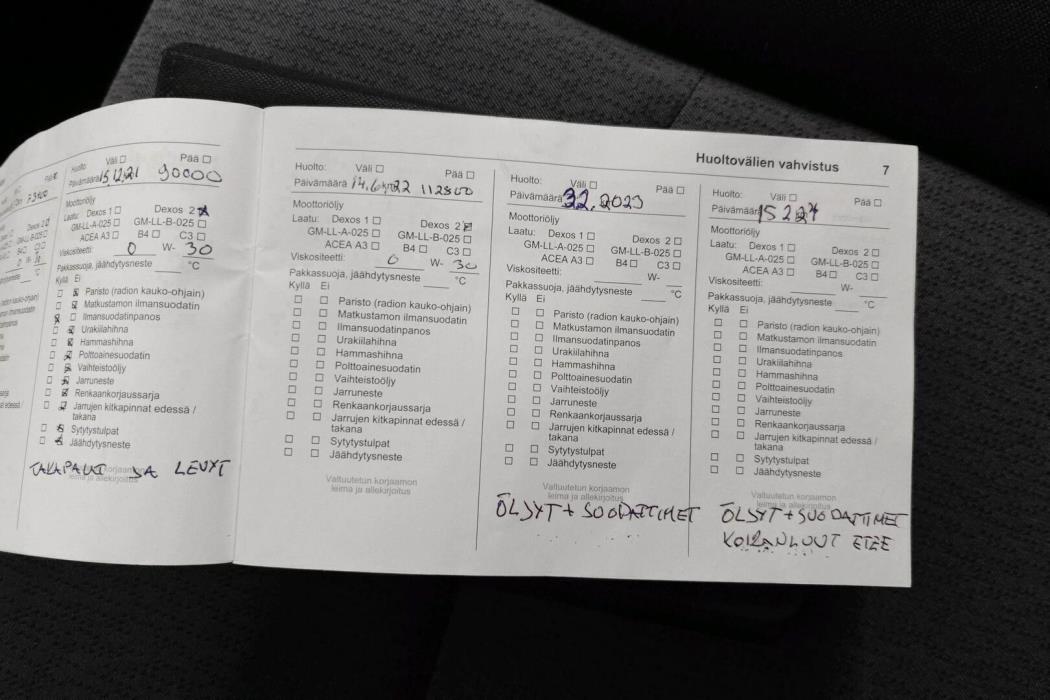 Huoltovälien vahvistus 7
Huolto: Väli Pää
Päivämäärä 15.12.21 90000
Moottoriöljy
Laatu: Dexos 1 Dexos 2
GM-LL-A-025 GM-LL-B-025
ACEA A3 B4 C3
Viskositeetti: 0 W- 30
Pakkassuoja, jäähdytysneste °C
Kyllä Ei
Paristo (radion kauko-ohjain)
Matkustamon ilmansuodatin
Ilmansuodatinpanos
Urakiilahihna
Hammashihna
Polttoainesuodatin
Vaihteistoöljy
Jarruneste
Renkaankorjaussarja
Jarrujen kitkapinnat edessä /
takana
Sytytystulpat
Jäähdytysneste
TAKAPALAT JA LEVYT
leima ja allekirjoitus
Huolto: Väli Pää
Päivämäärä 14.6 22 112800
Moottoriöljy
Laatu: Dexos 1 Dexos 2
GM-LL-A-025 GM-LL-B-025
ACEA A3 B4 C3
Viskositeetti: 0 W- 30
Pakkassuoja, jäähdytysneste °C
Kyllä Ei
Paristo (radion kauko-ohjain)
Matkustamon ilmansuodatin
Ilmansuodatinpanos
Urakiilahihna
Hammashihna
Polttoainesuodatin
Vaihteistoöljy
Jarruneste
Renkaankorjaussarja
Jarrujen kitkapinnat edessä /
takana
Sytytystulpat
Jäähdytysneste
Valtuutetun korjaamon
leima ja allekirjoitus
Huolto: Väli Pää
Päivämäärä 3 2. 2023
Moottoriöljy
Laatu: Dexos 1 Dexos 2
GM-LL-A-025 GM-LL-B-025
ACEA A3 B4 C3
Viskositeetti: W-
Pakkassuoja, jäähdytysneste °C
Kyllä Ei
Paristo (radion kauko-ohjain)
Matkustamon ilmansuodatin
Ilmansuodatinpanos
Urakiilahihna
Hammashihna
Polttoainesuodatin
Vaihteistoöljy
Jarruneste
Renkaankorjaussarja
Jarrujen kitkapinnat edessä /
takana
Sytytystulpat
Jäähdytysneste
Valtuutetun korjaamon
leima ja allekirjoitus
ÖLJYT + SUODATTIMET
Huolto: Väli Pää
Päivämäärä 15 2 24
Moottoriöljy
Laatu: Dexos 1 Dexos 2
GM-LL-A-025 GM-LL-B-025
ACEA A3 B4 C3
Viskositeetti: W-
Pakkassuoja, jäähdytysneste °C
Kyllä Ei
Paristo (radion kauko-ohjain)
Matkustamon ilmansuodatin
Ilmansuodatinpanos
Urakiilahihna
Hammashihna
Polttoainesuodatin
Vaihteistoöljy
Jarruneste
Renkaankorjaussarja
Jarrujen kitkapinnat edessä /
takana
Sytytystulpat
Jäähdytysneste
Valtuutetun korjaamon
leima ja allekirjoitus
ÖLJYT + SUODATTIMET
KOIRANLUUT ETEE